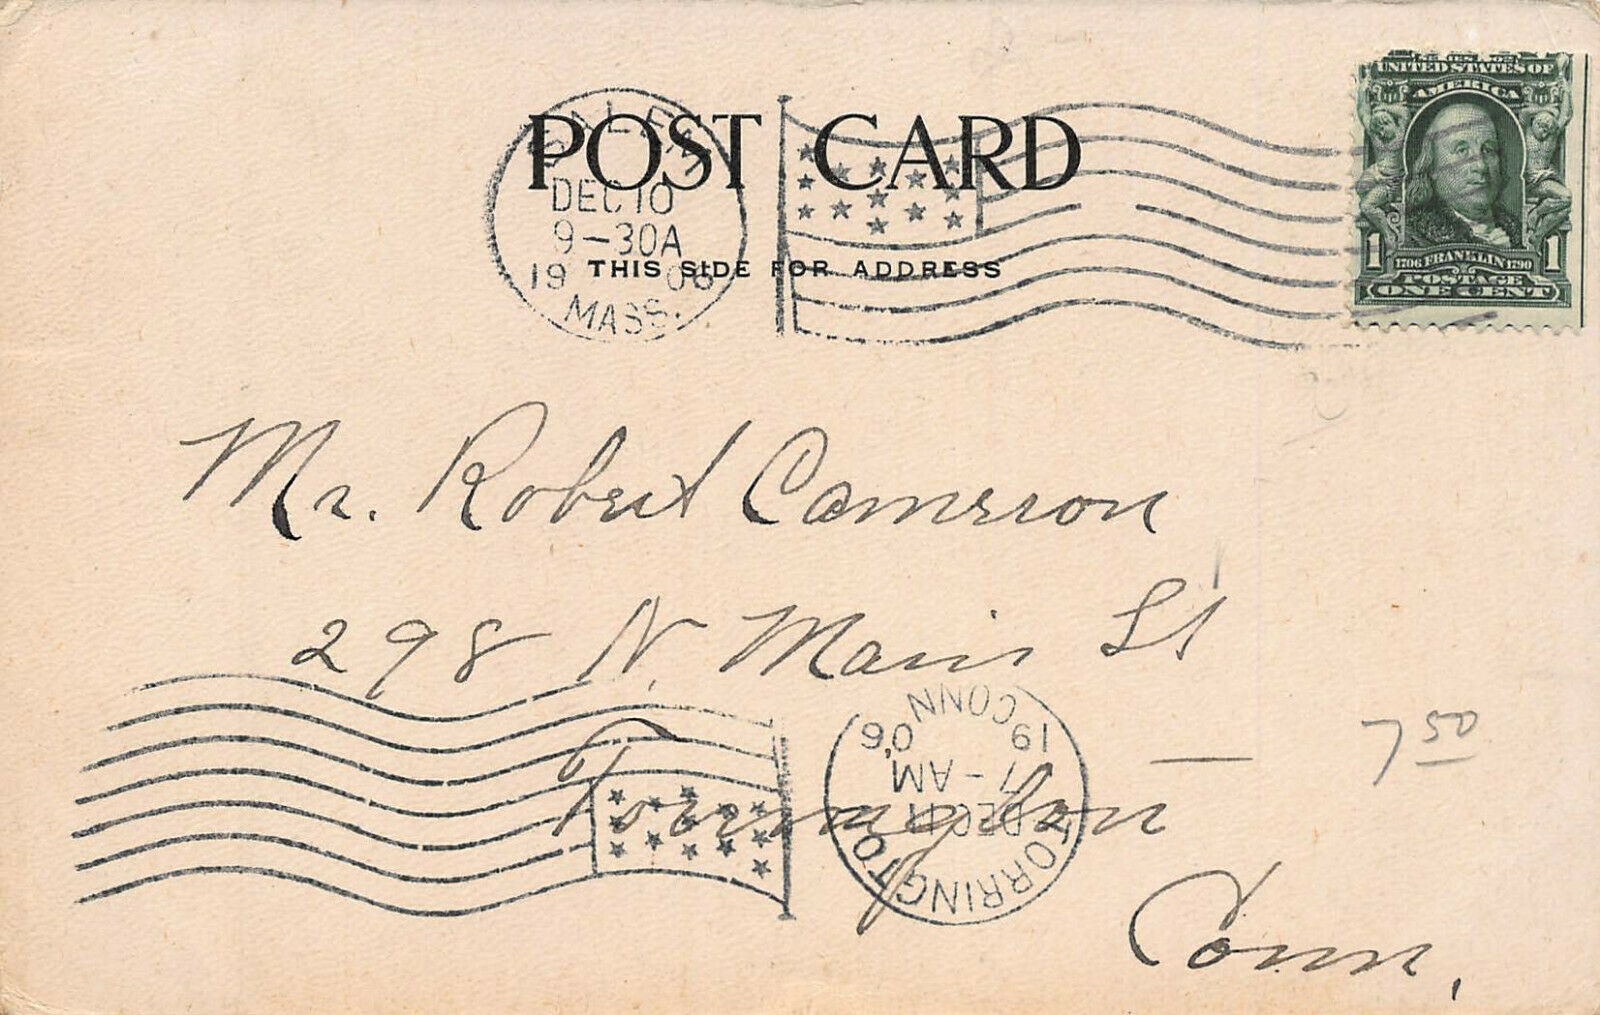 POST CARD
SALEM
DEC 10
9-30A
1906
MASS.
THIS SIDE FOR ADDRESS
UNITED STATES OF
AMERICA
1 1706 FRANKLIN 1790 1
POSTAGE
ONE CENT
Mr. Robert Cameron
298 N. Main St
Torrington
Conn.
7 50
TORRINGTON
DEC 11
7-AM
19 06
CONN